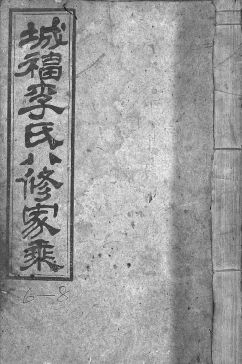 城福李氏八修家乘
6-8